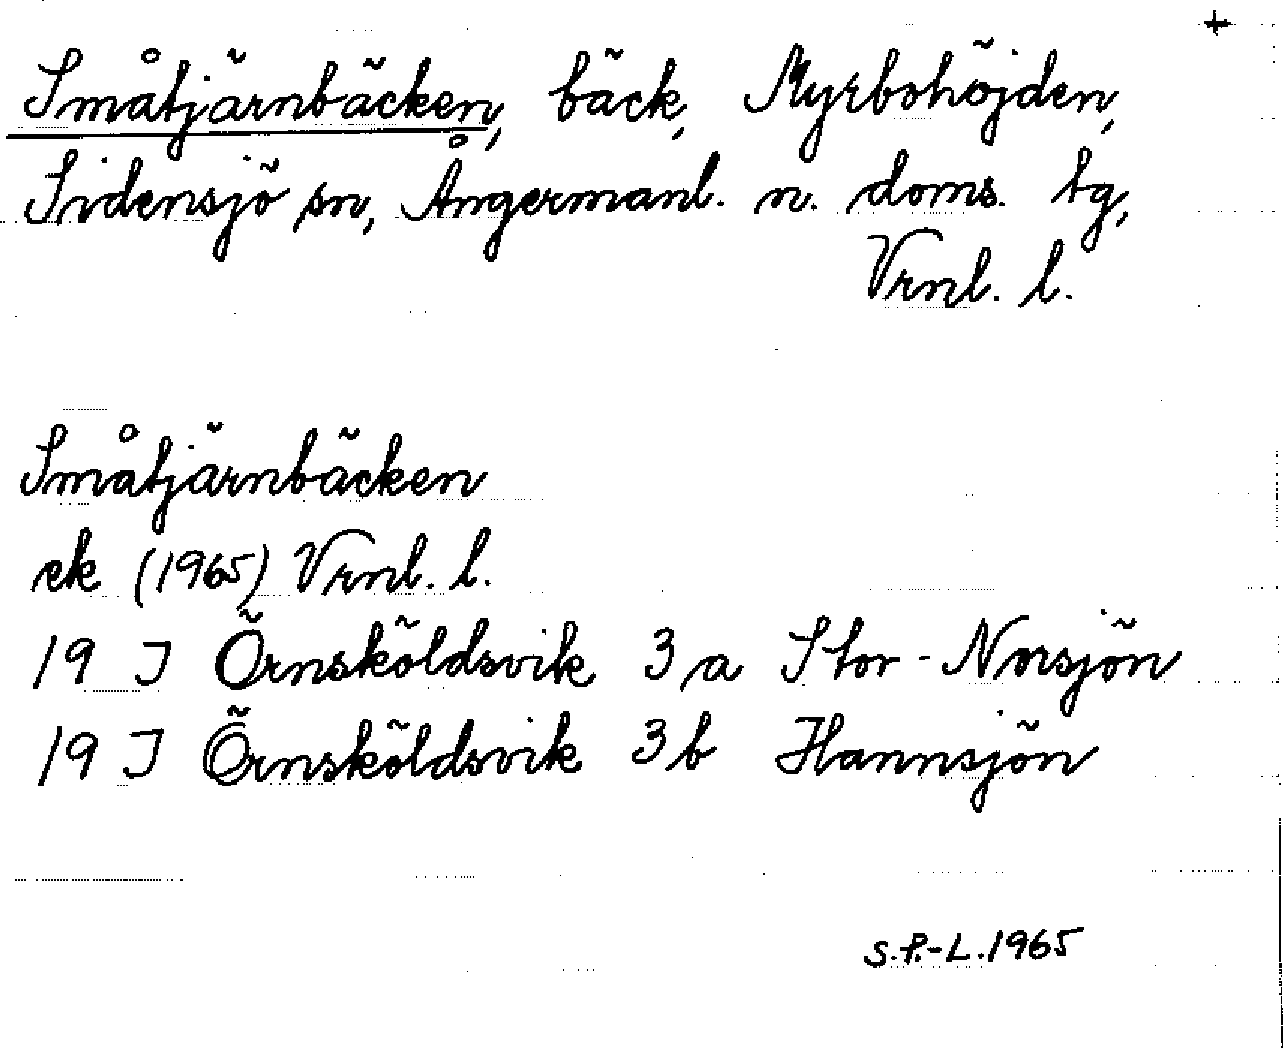 +
Småtjärnbäcken, bäck, Myrbohöjden,
Sidensjö sn, Ångermanl. n. doms. tg,
Vrnl. l.
Småtjärnbäcken
ek (1965) Vrnl. l.
19 I Örnsköldsvik 3 a Stor-Norsjön
19 I Örnsköldsvik 3 b Hannsjön
S.P.-L. 1965